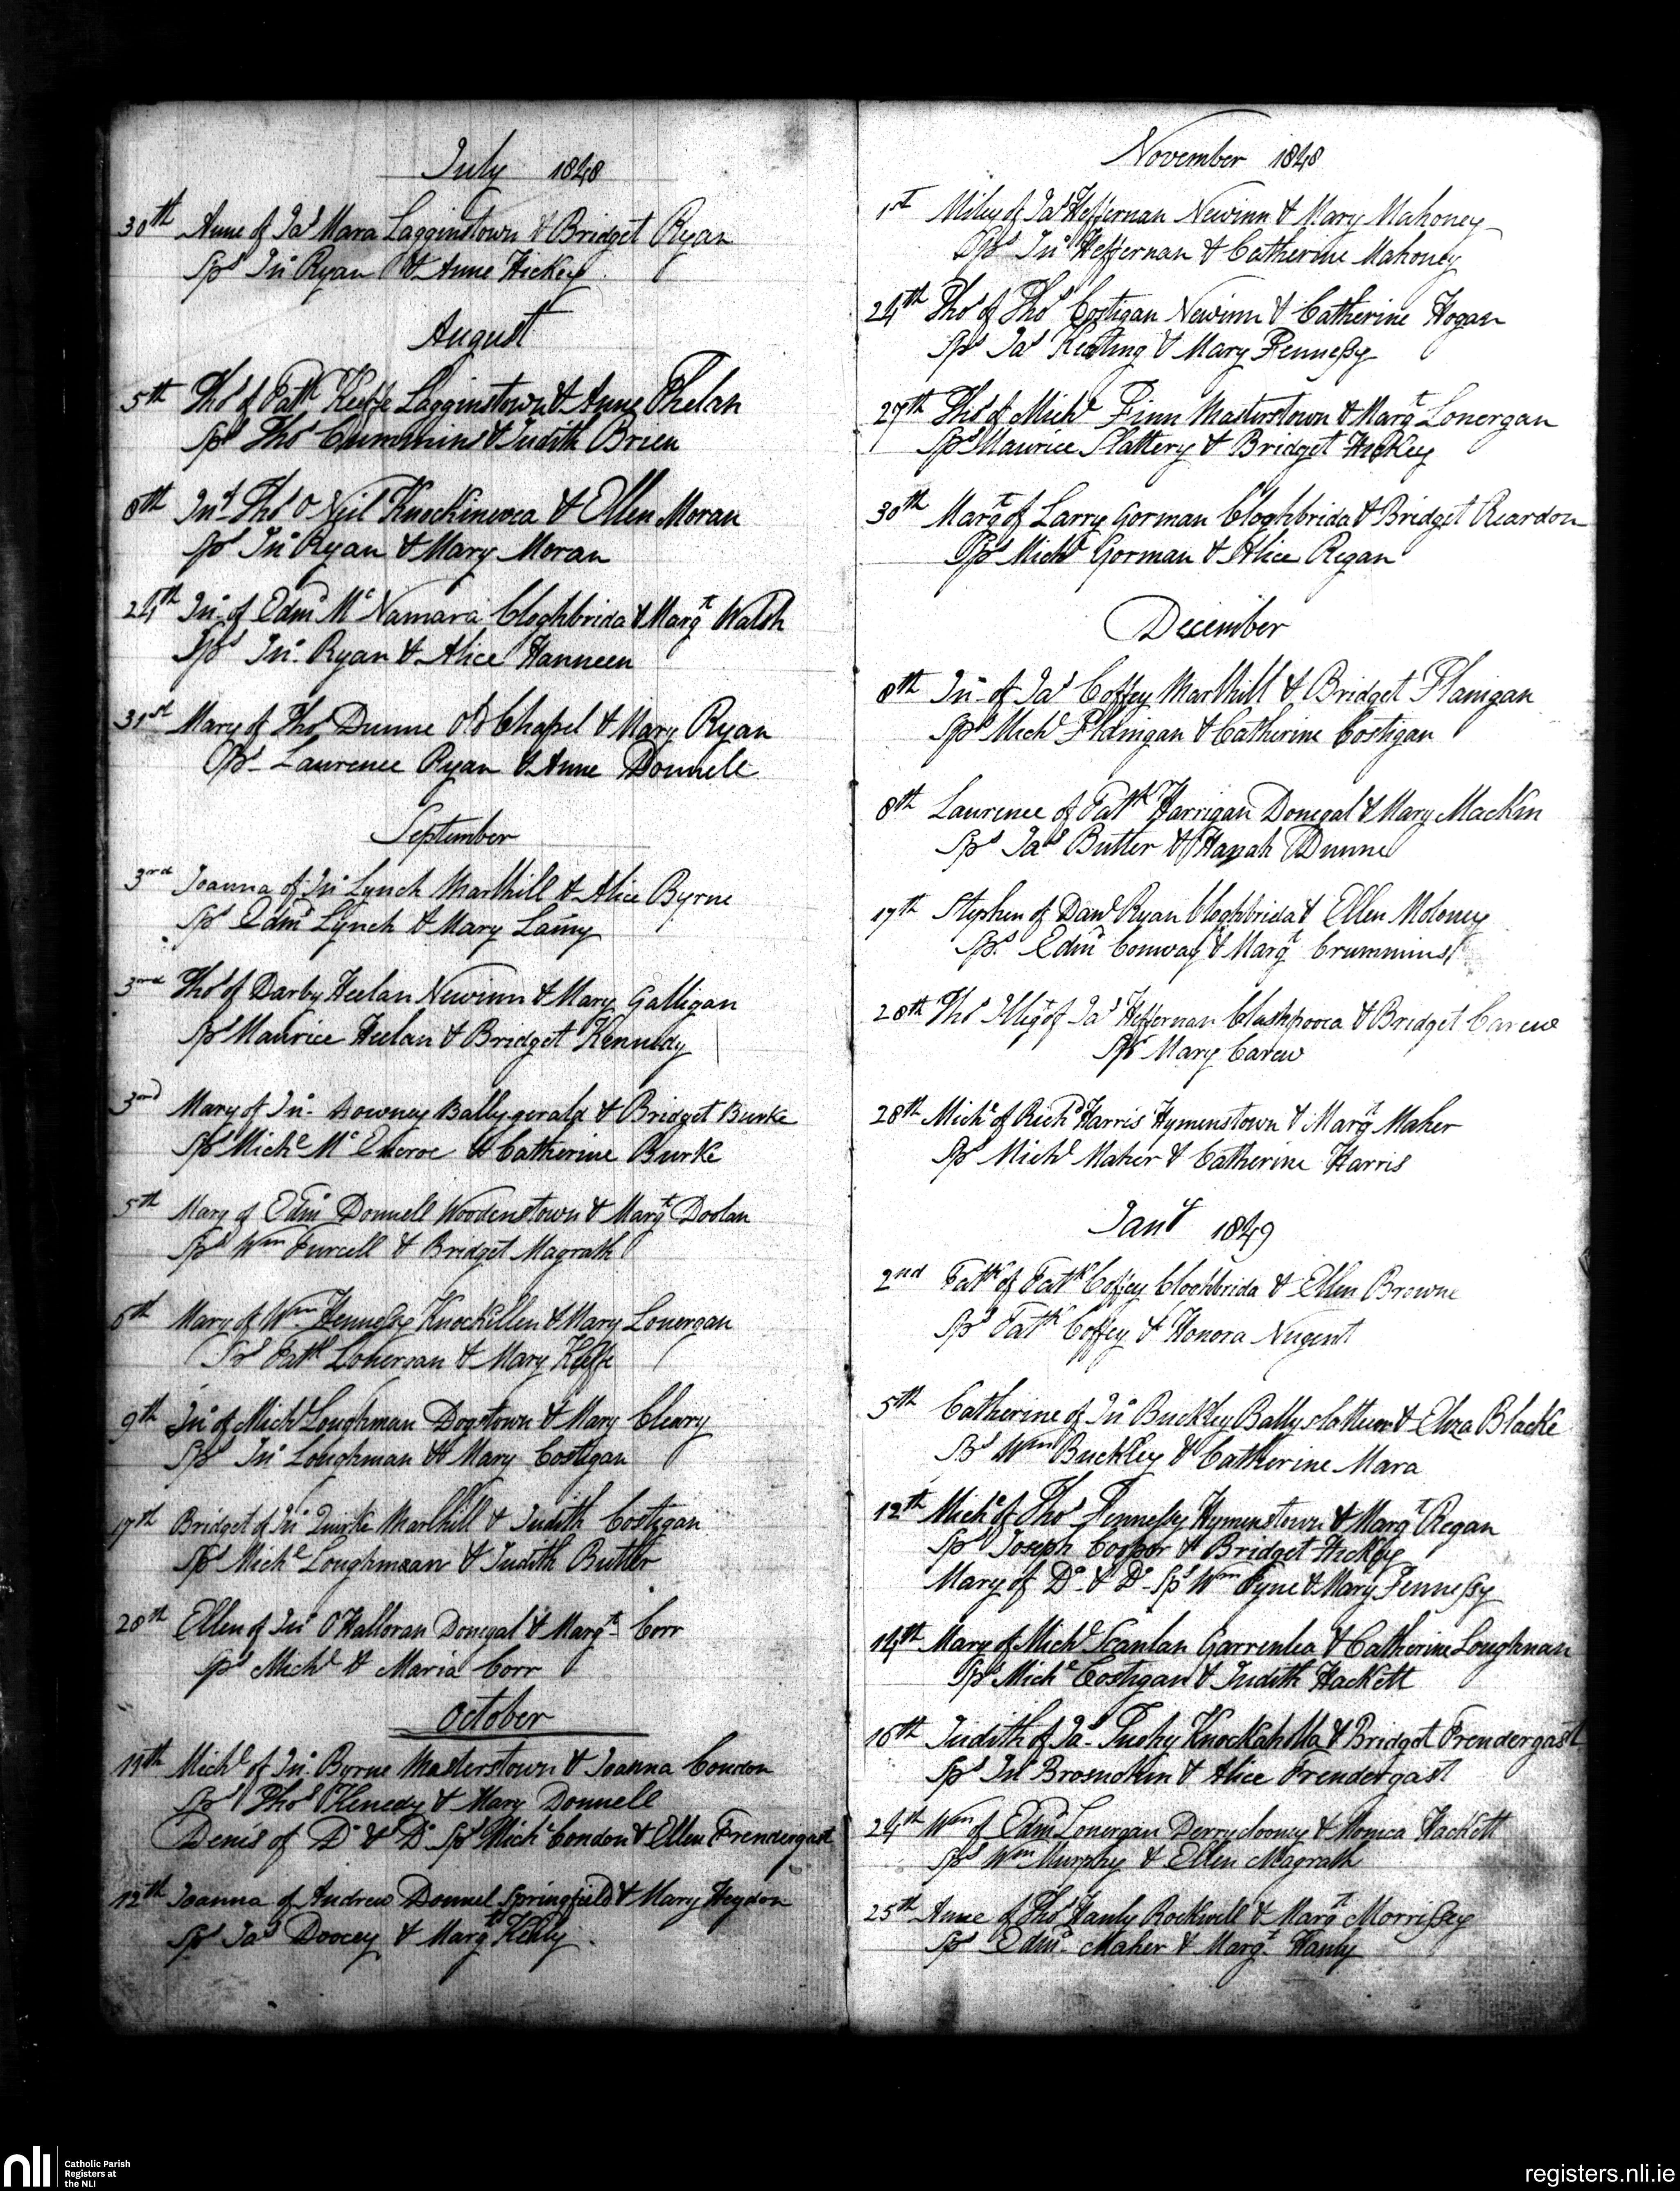 July 1848
30th Anne of Jas Mara Lagginstown & Bridget Ryan
Sps Jno Ryan & Anne Hickey
August
5th Thos of Patk Keeffe Lagginstown & Anne Phelan
Sps Thos Cummins & Judith Brien
8th Jno of Thos O Neil Knockineora & Ellen Moran
Sps Jno Ryan & Mary Moran
24th Jno of Edmd Mc Namara Cloghbrida & Margt Walsh
Sps Jno Ryan & Alice Hanneen
31st Mary of Thos Dunne Old Chapel & Mary Ryan
Sps Laurence Ryan & Anne Donnell
September
3rd Joanna of Jno Lynch Marlhill & Alice Byrne
Sps Edmd Lynch & Mary
3rd Thos of Darby Heelan Newinn & Mary Galligan
Sps Maurice Heelan & Bridget Kennedy
3rd Mary of Jno Downey Ballygerald & Bridget Burke
Sps Michl Mc Encroe & Catherine Burke
5th Mary of Edmd Donnell Woodenstown & Margt Doolan
Sps Wm Purcell & Bridget Magrath
6th Mary of Wm Hennessy Knockillen & Mary Lonergan
Sps Patk Lonergan & Mary Keeffe
9th Jno of Michl Loughman Dogstown & Mary Cleary
Sps Jno Loughman & Mary Costigan
17th Bridget of Jno Quirke Marlhill & Judith Costigan
Sps Michl Loughman & Judith Butler
28th Ellen of Jno O'Halloran Donegal & Margt Corr
Sps Michl & Maria Corr
October
11th Michl of Jno Byrne Masterstown & Joanna Condon
Sps Thos Kenedy & Mary Donnell
Denis of Do & Do Sps Michl Condon & Ellen Prendergast
12th Joanna of Andrew Donnel Springfield & Mary Heydon
Sps Jas Doocey & Margt Kelly
November 1848
1st Miley of Jas Heffernan Newinn & Mary Mahoney
Sps Jno Heffernan & Catherine Mahoney
24th Thos of Thos Costigan Newinn & Catherine Hogan
Sps Jas Keating & Mary Fennessy
27th Thos of Michl Finn Masterstown & Margt Lonergan
Sps Maurice Slattery & Bridget Hickey
30th Margt of Larry Gorman Cloghbrida & Bridget Reardon
Sps Michl Gorman & Alice Regan
December
8th Jno of Jas Coffey Marlhill & Bridget Flanigan
Sps Michl Flanigan & Catherine Costigan
8th Laurence of Patk Harrigan Donegal & Mary Mackin
Sps Jas Butler & Hanah Dunne
17th Stephen of Danl Ryan Cloghbrida & Ellen Moloney
Sps Edmd Conway & Margt Crummins
28th Thos Illigt of Jas Heffernan Clashpooca & Bridget Carew
Sps Mary Carew
28th Michl of Richd Harris Hymenstown & Margt Maher
Sps Michl Maher & Catherine Harris
Jany 1849
2nd Patk of Patk Coffey Clochbrida & Ellen Browne
Sps Patk Coffey & Honora Nugent
5th Catherine of Jno Buckley Ballyslatteen & Eliza Blacke
Sps Wm Buckley & Catherine Mara
12th Michl of Thos Fennessy Hymenstown & Margt Regan
Sps Joseph Cooper & Bridget Hickey
Mary of Do & Do Sps Wm Pyne & Mary Fennessy
14th Mary of Michl Scanlan Garrenlea & Catherine Loughnan
Sps Michl Costigan & Judith Hackett
16th Judith of Jas Tuohy & Bridget Prendergast
Sps Jno Brosnohin & Alice Prendergast
24th Wm of Edmd Lonergan Derryclooney & Monica Hackett
Sps Wm Murphy & Ellen Magrath
25th Anne of Thos Hanly Rockwell & Margt Morrissey
Sps Edmd Maher & Margt Hanly
nli
Catholic Parish
Registers at
the NLI
registers.nli.ie